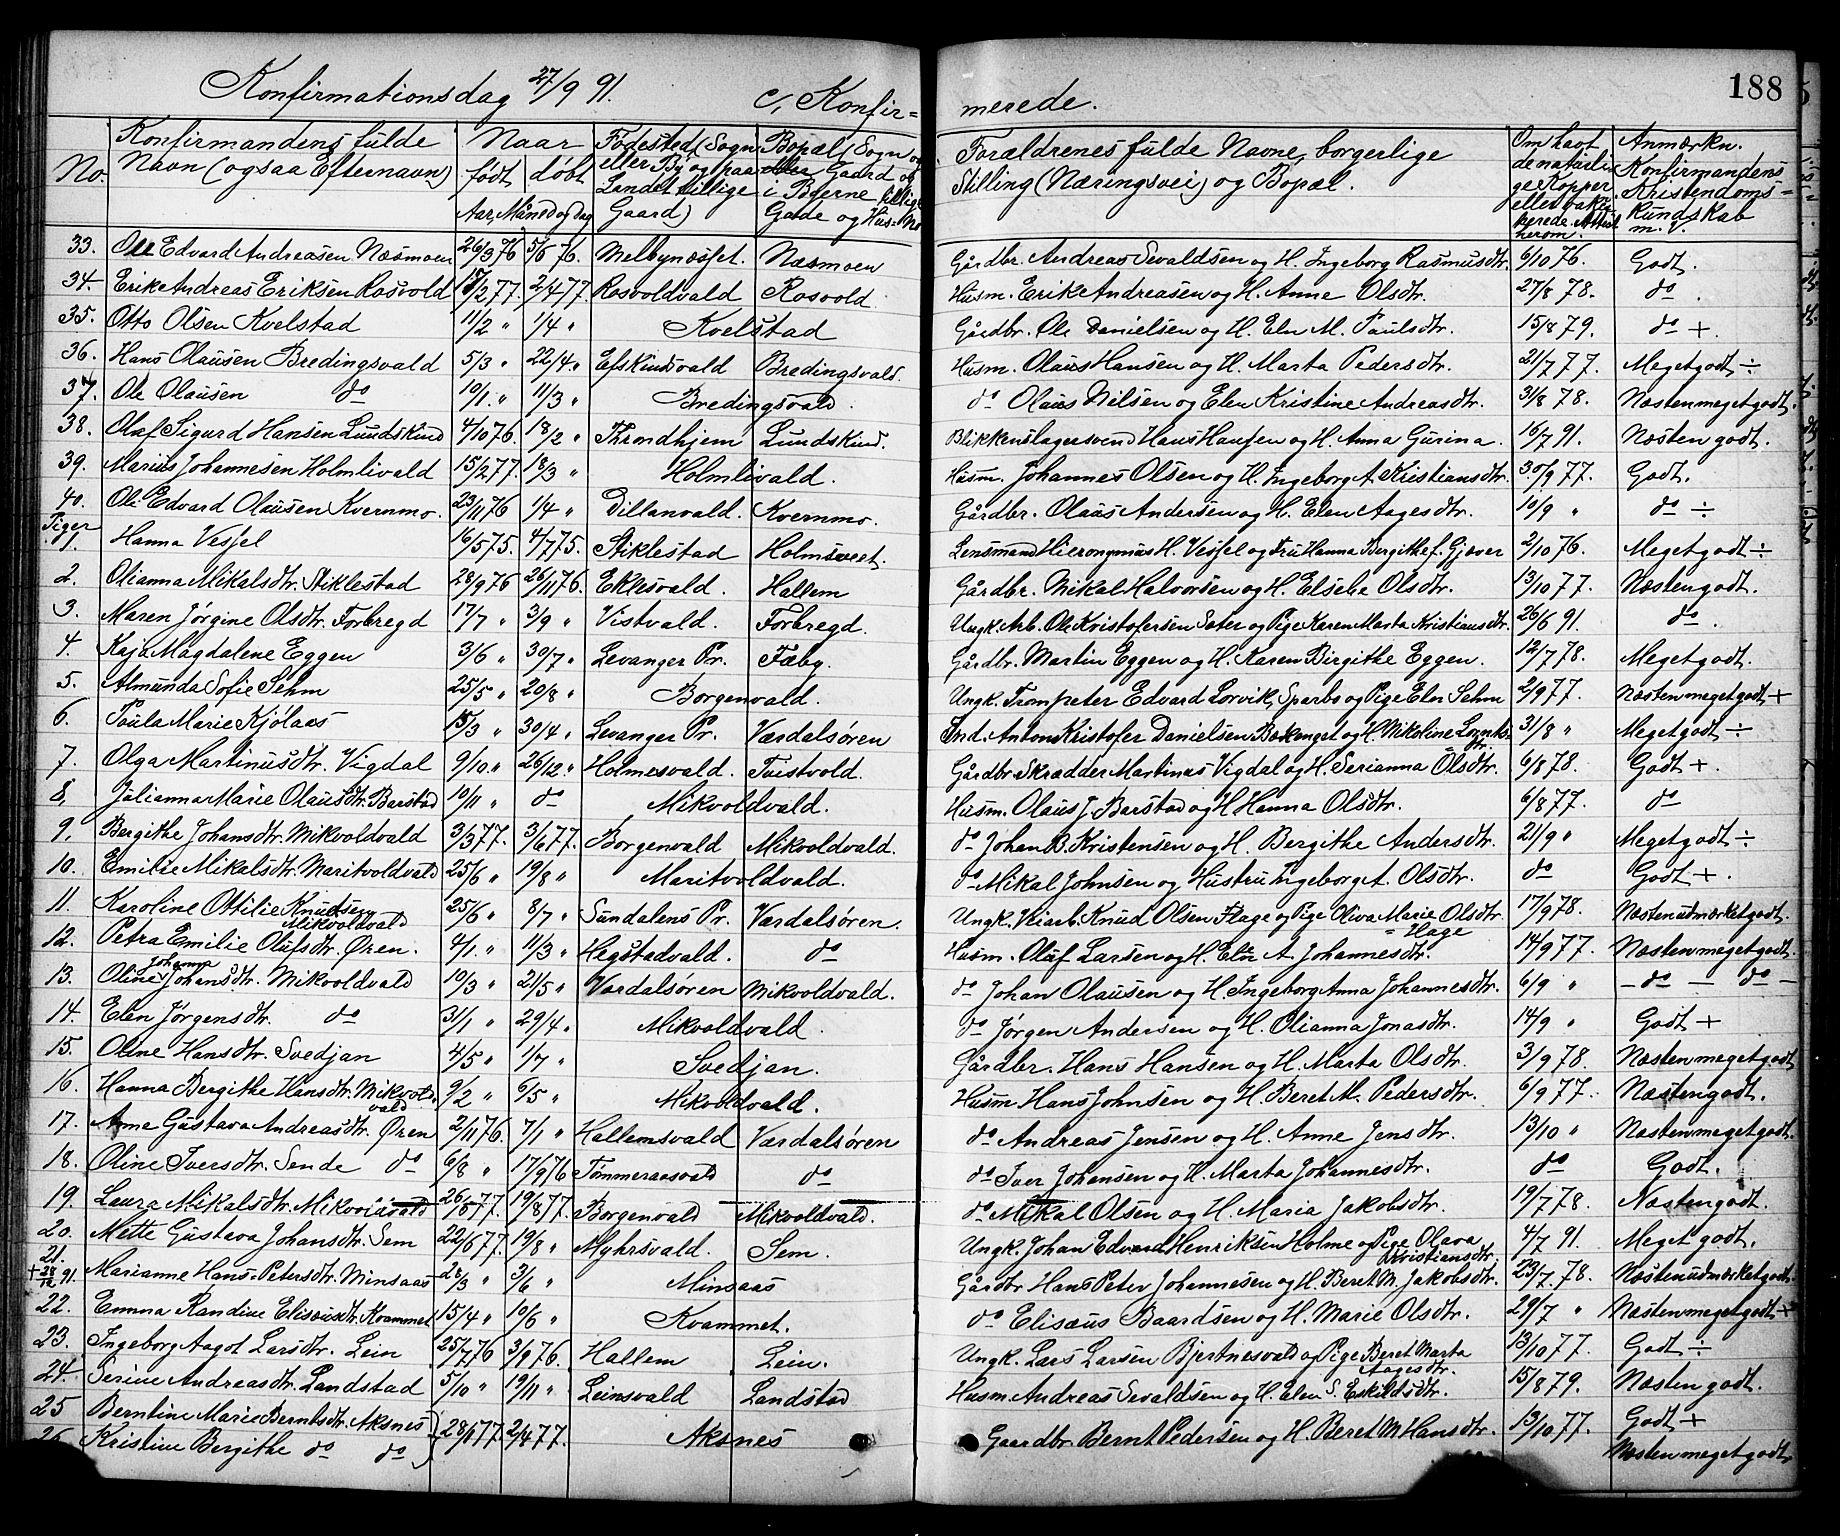 188
Konfirmationsdag 27/9 91. c, Konfir= merede.
No. Konfirmandens fulde Navn (ogsaa Efternavn) Naar født døbt Aar, Måned og dag Fødested (Sogn eller By og paa Landet tillige Gaard) Bopæl (Sogn og Gaard og i Byerne tillige Gade og Hus-No Forældrenes fulde Navne, borgerlige Stilling (Næringsvei) og Bopæl. Om havt de naturlige Kopper eller vakcinerede. Attest herom. Anmærkn. Konfirmandens Kristendoms=kundskab m. v.
33. Ole Edvard Andreasen Næsmoen 26/3 76 5/6 76. Melbynæsset. Næsmoen Gårdbr. Andreas Sevaldsen og H. Ingeborg Rasmusdtr. 6/10 76. Godt.
34. Erik Andreas Eriksen Rosvold 15/2 77. 2/4 77. Rosvoldvald Rosvold. Husm. Erik Andreasen og H. Anne Olsdtr. 27/8 78. do.
35. Otto Olsen Kvelstad 11/2 " 1/4 " Kvelstad Gårdbr. Ole Danielsen og H. Eln M. Paulsdtr. 15/8 79. do +
36. Hans Olausen Bredingsvald 5/3 " 22/4 " Efskindsvald Bredingsvald. Husm. Olaus Hansen og H. Marta Pedersdtr. 21/7 77. Meget godt ÷
37. Ole Olausen do 10/1. " 11/3 " Bredingsvald. do Olaus Nilsen og Elen Kristine Andreasdtr. 31/8 78. Næsten meget godt.
38. Olaf Sigurd Hansen Lundskind 4/10 76. 18/2 " Throndhjem Lundskind. Blikkenslagersvend Hans Hansen og H. Anna Gurina. 16/7 91. Næsten godt.
39. Marius Johannesen Holmlivald 15/2 77. 18/3 " Holmlivald. Husm. Johannes Olsen og H. Ingeborg A. Kristiansdtr. 30/9 77. Godt.
40. Ole Edvard Olausen Kvernmo. 23/11 76 1/4 " Dillanvald. Kvernmo. Gårdbr. Olaus Andersen og H. Elen Aagesdtr. 10/9 " do ÷
Piger
1. Hanna Vessel 16/5 75. 4/7 75. Stiklestad Holmsveet. Lensmand Hieronymus H. Vessel og Fru Hanna Bergithe f. Gjæver 2/10 76. Meget godt ÷
2. Olianna Mikalsdtr. Stiklestad 28/9 76 26/11 76. Eklesvald. Hallem Gårdbr. Mikal Halvorsen og H. Elsebe Olsdtr. 13/10 77. Næsten godt.
3. Maren Jørgine Olsdtr. Forbregd 17/7 " 3/9 " Vistvald. Forbregd. Ungk. Arb. Ole Kristofersen Sæter og Pige Karen Marta Kristiansdtr. 26/6 91. do.
4. Kaja Magdalene Eggen 3/6 " 30/7 " Levanger Pr. Fæby. Gårdbr. Martin Eggen og H. Karen Birgithe Eggen. 12/7 78. Meget godt.
5. Almunda Sofie Sehm 25/5 " 20/8 " Borgenvald. Ungk. Trompeter Edvard Lorvik, Sparbo og Pige Elen Sehm 2/9 77. Næsten meget godt +
6. Paula Marie Kjölaas 15/3 " 30/4 " Levanger Pr. Værdalsøren Ind. Anton Kristofer Danielsen Bakenget og H. Nikoline Lorntsdtr. 31/8 " Meget godt ÷
7. Olga Martinusdtr. Vigdal 9/10 " 26/12 " Holmesvald. Tuistvold. Gårdbr. Skrædder Martinus Vigdal og H. Serianna Olsdtr. 6/8 78. Godt +.
8. Julianna Marie Olausdtr. Barstad 10/11 " do Mikvoldvald. Husm. Olaus J. Barstad og H. Hanna Olsdtr. 6/8 77. do
9. Bergithe Johansdtr. Mikvoldvald 3/3 77. 3/6 77. Borgenvald Mikvoldvald. do Johan B. Kristensen og H. Bergithe Andersdtr. 21/9 " Meget godt ÷
10. Emilie Mikalsdtr. Maritvoldvald 25/6 " 19/8 " Maritvoldvald. do Mikal Johnsen og Hustru Ingeborg A. Olsdtr. do Godt +.
11. Karoline Ottilie Knudsen Mikvoldvald 25/6 " 8/7 " Sundalens Pr. Værdalsøren. Ungk. Veiarb. Knud Olsen Flage og Pige Oliva Marie Olsdtr =Hage 17/9 78. Næsten udmærket godt.
12. Petra Emilie Olufsdtr. Øren. 4/1. " 11/3 " Hegstadvald. do Husm. Oluf Larsen og H. Elen A. Johannesdtr. 14/9 77. Næsten meget godt.
13. Oline Johanna Johansdtr. Mikvoldvald 19/3 " 21/5 " Værdalsøren Mikvoldvald. do Johan Olausen og H. Ingeborg Anna Johannesdtr. 6/9 " – do – do –
14. Elen Jørgensdtr. do 31/1 " 29/4 " Mikvoldvald. do Jørgen Andersen og H. Olianna Jonasdtr. 14/9 " Godt +
15. Oline Hansdtr. Svedjan 4/5 " 1/7 " Svedjan. Gårdbr. Hans Hansen og H. Marta Olsdtr. 3/9 78. Næsten meget godt
16. Hanna Bergithe Hansdtr. Mikvoldvald 9/2 " 6/5 " Mikvoldvald. Husm. Hans Johnsen og H. Beret M. Pedersdtr. 6/9 77. Næsten godt.
17. Anne Gustava Andreasdtr. Øren 2/11 76. 7/1 " Hallemsvald Værdalsøren do Andreas Jensen og H. Anne Jensdtr. 13/10 " Næsten meget godt.
18. Oline Iversdtr. Sende do 6/8 " 17/9 76 Tømmeraasvald do do Iver Johansen og H. Marta Johannesdtr. do Godt.
19. Laura Mikalsdtr. Mikvoldvald 26/6 77. 19/8 77. Borgenvald Mikvoldvald. do Mikal Olsen og H. Maria Jakobsdtr. 19/7 78. Næsten godt.
20. Mette Gustava Johansdtr. Sem 22/6 77. 19/8 " Myhrsvald. Sem. Ungk. Johan Edvard Henriksen Holme og Pige Olava Kristiansdtr. 4/7 91. Meget godt.
21. + 28/12 91. Marianne Hans-Petersdtr. Minsaas 28/3 " 3/6 " Minsaas Gårdbr Hans Peter Johannesen og H. Beret M. Jakobsdtr. 23/7. 78. Næsten udmærket godt.
22. Emma Randine Elisæusdtr. Kvammet 15/4 " 10/6 " Kvammet. do Elisæus Baardsen og H. Marie Olsdtr. 29/7 " Næsten meget godt +
23. Ingeborg Aagot Larsdtr. Lein 25/7 76 3/9 76. Hallem Lein. Ungk. Lars Larsen Bjertnesvald og Pige Beret Marta Aagesdtr. 13/10 77. Godt ÷
24. Serine Andreasdtr. Landstad 5/10 " 19/11 " Leinsvald Landstad Husm. Andreas Sevaldsen og H. Elen S. Eskildsdtr. 15/8 79. Næsten godt.
25 Berntine Marie Berntsdtr. Aksnes 28/1 77. 2/4 77. Aksnes Gaardbr. Bernt Pedersen og H. Beret M Hansdtr. 13/10 77. Godt +
26. Kristine Bergithe do do Næsten meget godt.